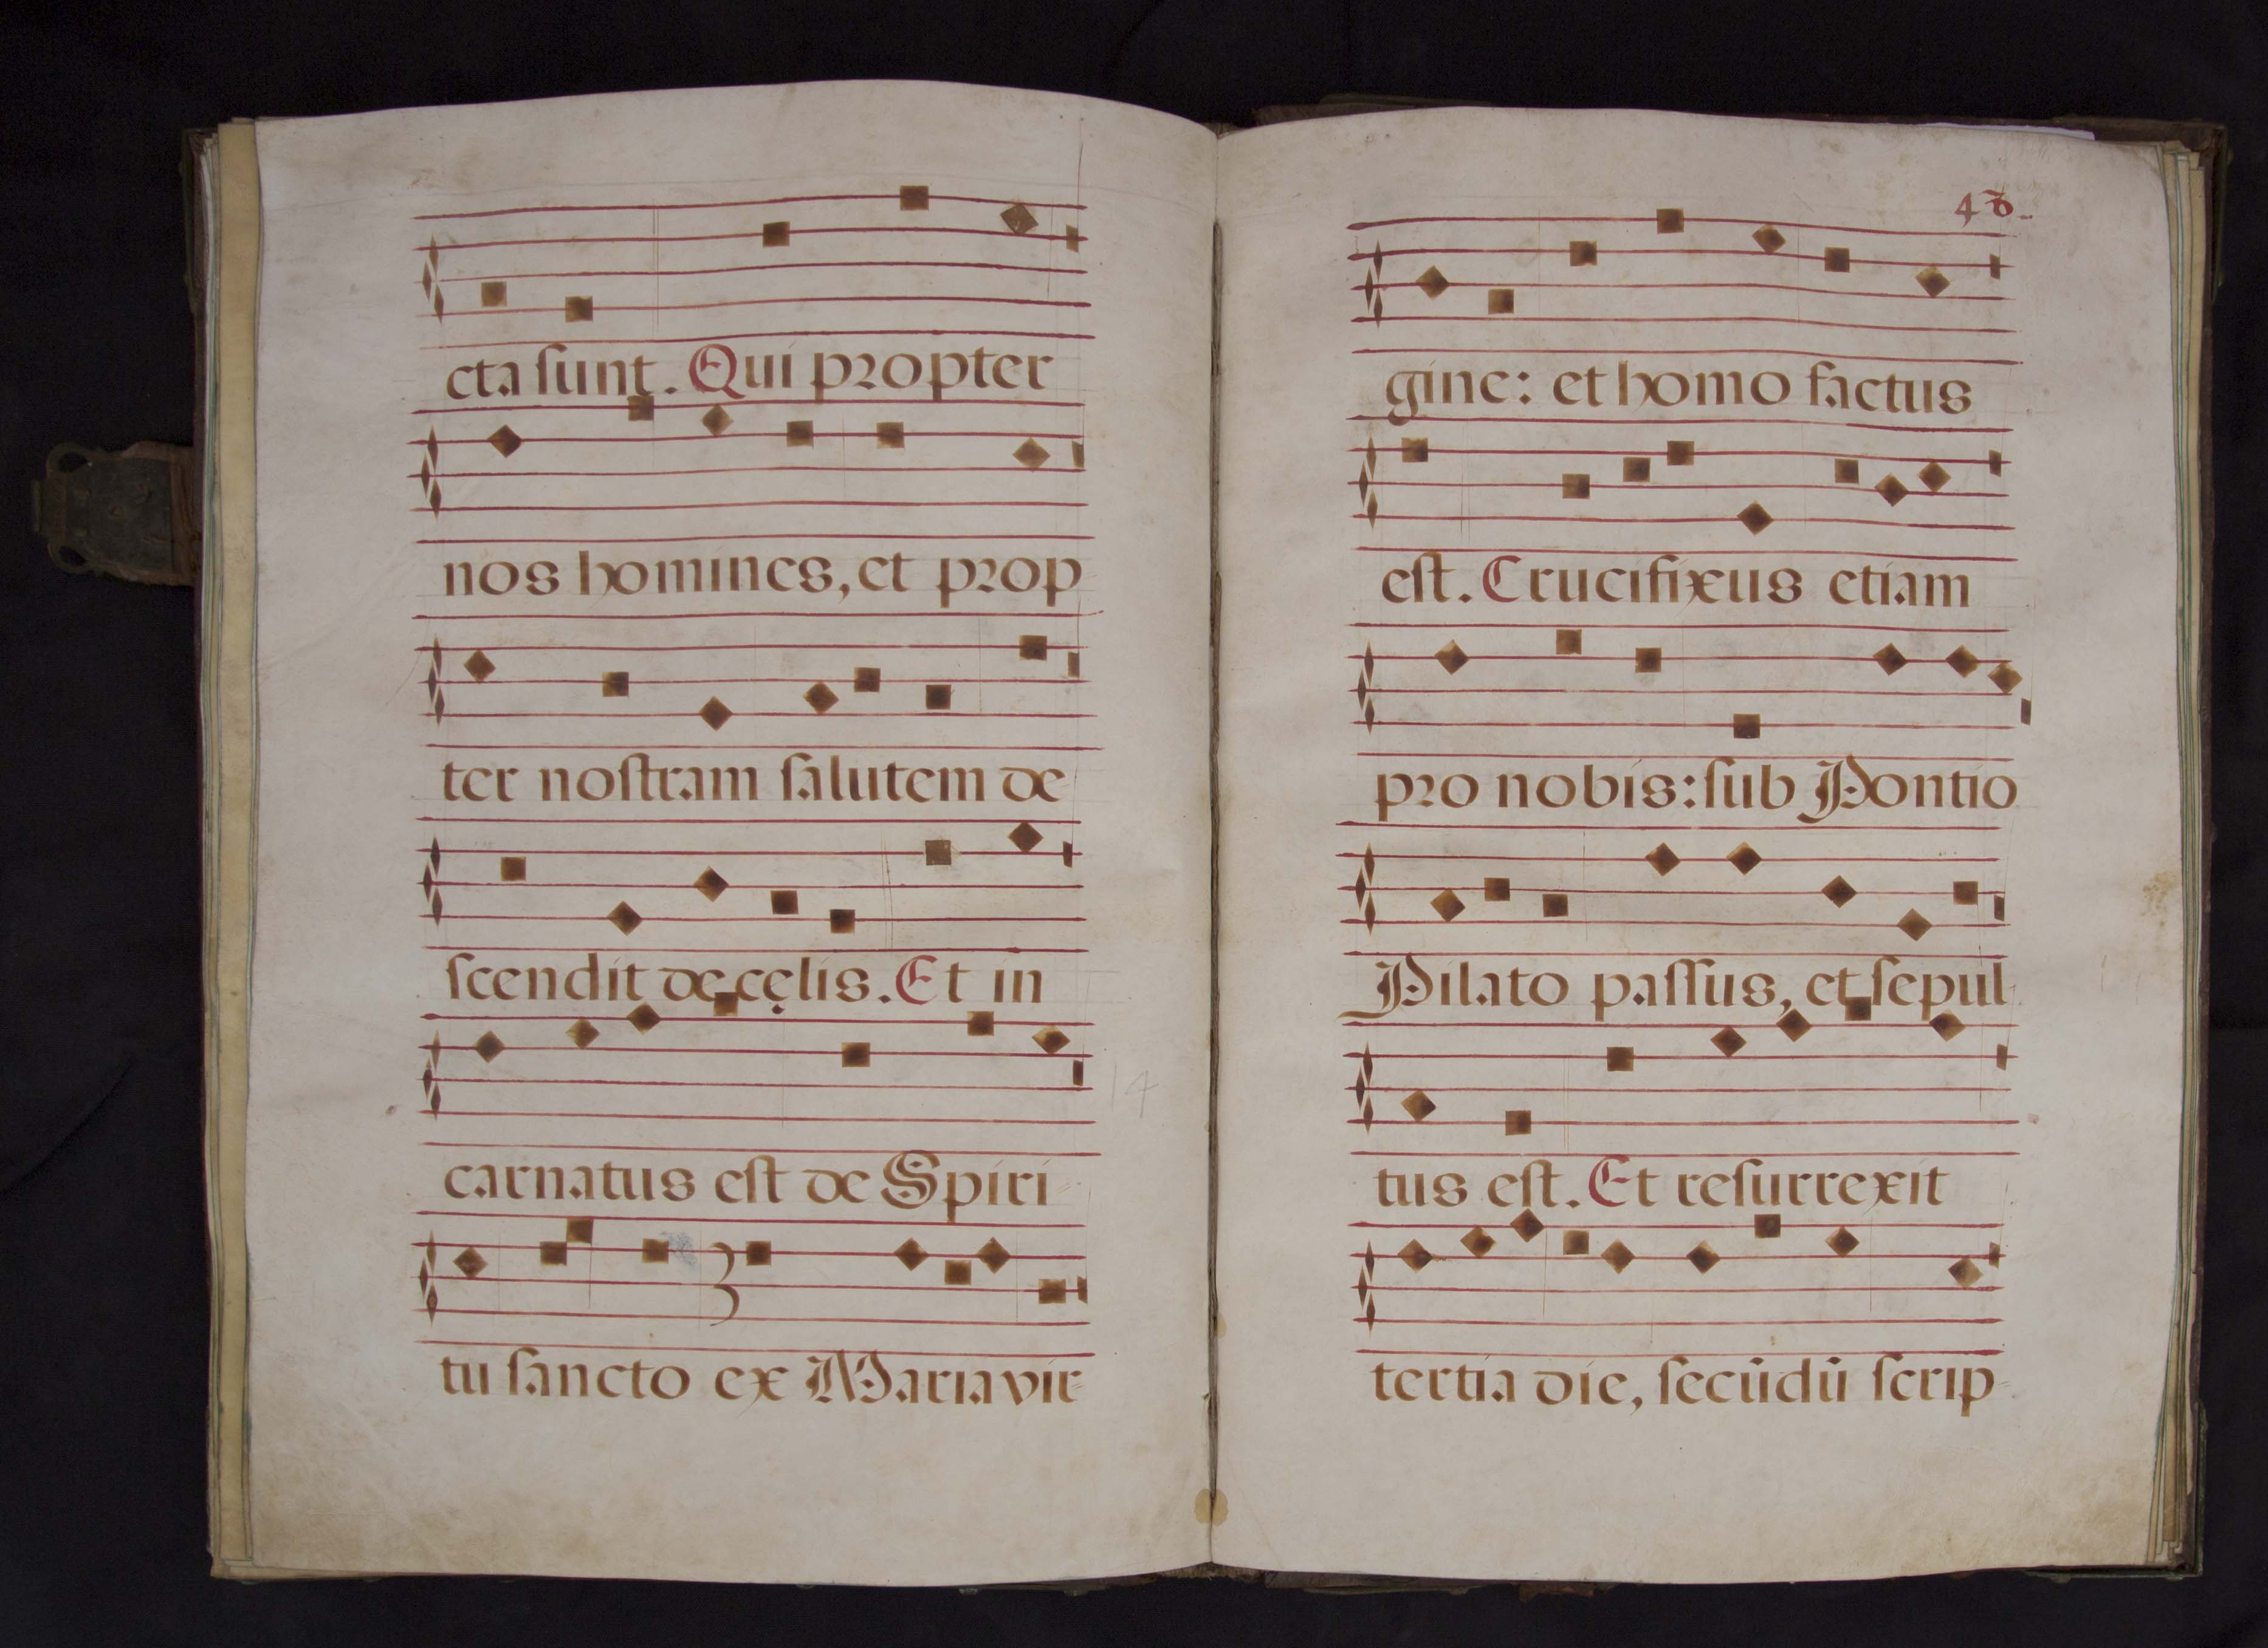 cta ſunt. Qui propter
nos homines, et prop
ter noſtram ſalutem de
ſcendit de cęlis. Et in
carnatus eſt de Spiri
tu ſancto ex Maria vir
gine: et homo factus
eſt. Crucifixus etiam
pro nobis: ſub Pontio
Pilato paſſus, et ſepul
tus eſt. Et reſurrexit
tertia die, ſecūdū ſcrip